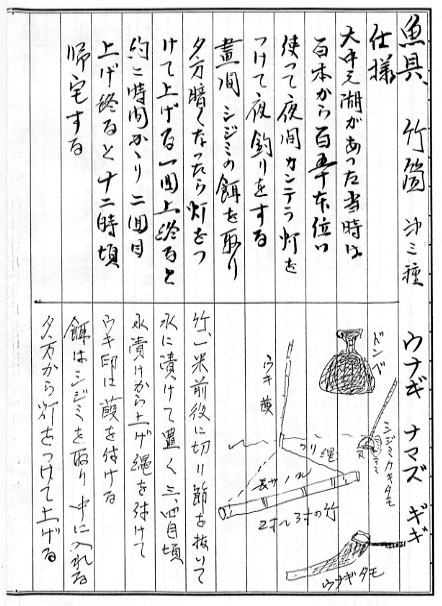 魚具、竹筒 沖三種 ウナギ ナマズ ギギ
仕様
大中元湖があった当時は
百本から百五十本位い
使って夜間カンテラ灯を
つけて夜釣りをする
昼間シジミの餌を取り
夕方暗くなったら灯をつ
けて上げる一回上終ると
約二時間かゝり二回目
上げ終ると十二時頃
帰宅する
ドンベ
シジミカキタモ
ウキ 葭
ツリ縄
長サ1米
2寸〜3寸の竹
ウナギタモ
竹、一米前後に切り節を抜いて
水に漬けて置く三、四日頃
水漬けから上げ縄を付けて
ウキ印は葭を付ける
餌はシジミを取り中に入れる
夕方から灯をつけて上げる